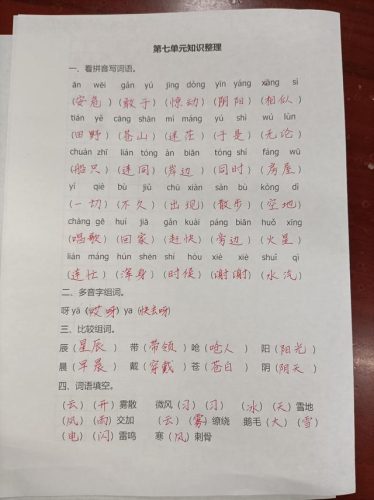 第七单元知识整理
一、看拼音写词语。
ān wēi gǎn yú jīng dòng yīn yáng xāng sì
（安危）（敢于）（惊动）（阴阳）（相似）
tián yě cāng shān mí máng yú shì wú lùn
（田野）（苍山）（迷茫）（于是）（无论）
chuán zhī lián tóng àn biān tóng shí fáng wū
（船只）（连同）（岸边）（同时）（房屋）
yí qiè bù jiǔ chū xiàn sàn bù kōng dì
（一切）（不久）（出现）（散步）（空地）
chàng gē huí jiā gǎn kuài páng biān huǒ xīng
（唱歌）（回家）（赶快）（旁边）（火星）
lián máng hún shēn shí hòu xiè xiè shuǐ qì
（连忙）（浑身）（时候）（谢谢）（水汽）
二、多音字组词。
呀 yā（哎呀）ya（快去呀）
三、比较组词。
辰（星辰） 带（带领） 呛（呛人） 阳（阳光）
晨（早晨） 戴（穿戴） 苍（苍白） 阴（阴天）
四、词语填空。
（云）（开）雾散 微风（习）（习） （冰）（天）雪地
（风）（雨）交加 （云）（雾）缭绕 鹅毛（大）（雪）
（电）（闪）雷鸣 寒（风）刺骨